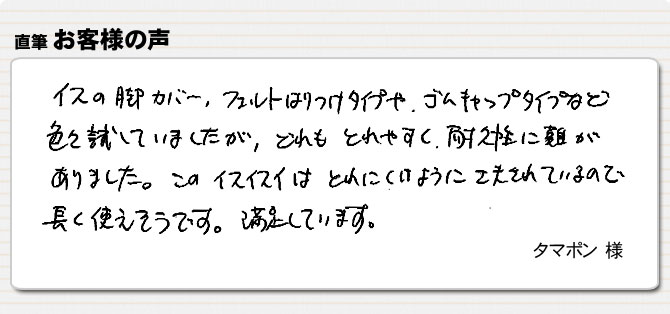 直筆 お客様の声
イスの脚カバー、フェルトはりつけタイプや、ゴムキャップタイプなど
色々試していましたが、どれも とれやすく、耐久性に難が
ありました。この イスイスイは とれにくいように工夫されているので
長く使えそうです。満足しています。
タマポン 様